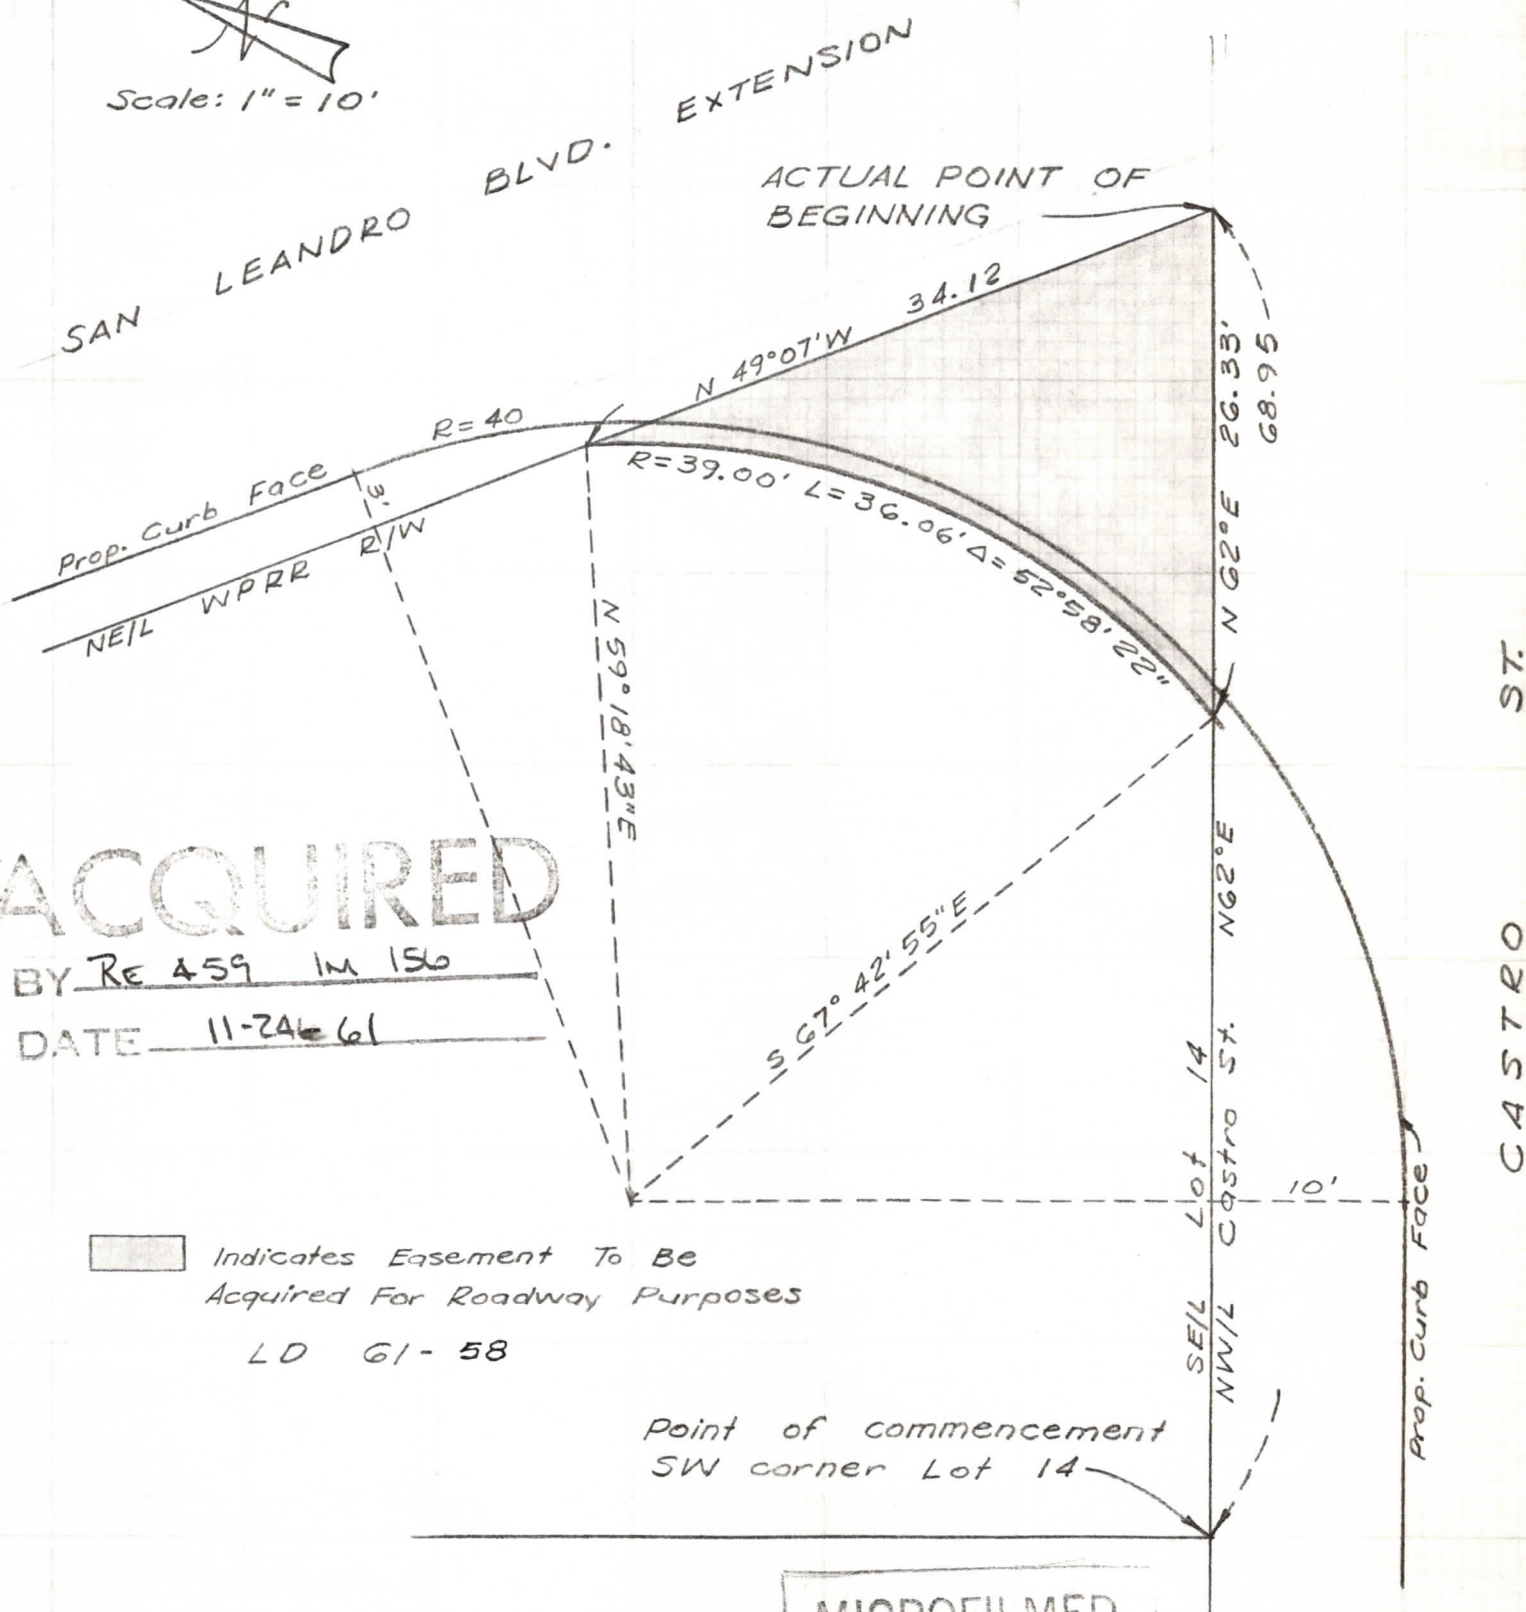 N
Scale: 1" = 10'
SAN LEANDRO BLVD. EXTENSION
ACTUAL POINT OF
BEGINNING
34.12
N 49°07'W
26.33'
68.95
N 62°E
R=40
R=39.00' L=36.06' Δ=52°58'22"
Prop. Curb Face
3'
R/W
NE/L WPRR
N 59°18'43"E
S 67° 42' 55" E
N62°E
CASTRO ST.
ACQUIRED
BY RE 459 IM 156
DATE 11-24-61
SE/L Lot 14
NW/L Castro St.
10'
Prop. Curb Face
Indicates Easement To Be
Acquired For Roadway Purposes
LD 61-58
Point of commencement
SW corner Lot 14
MICROFILMED